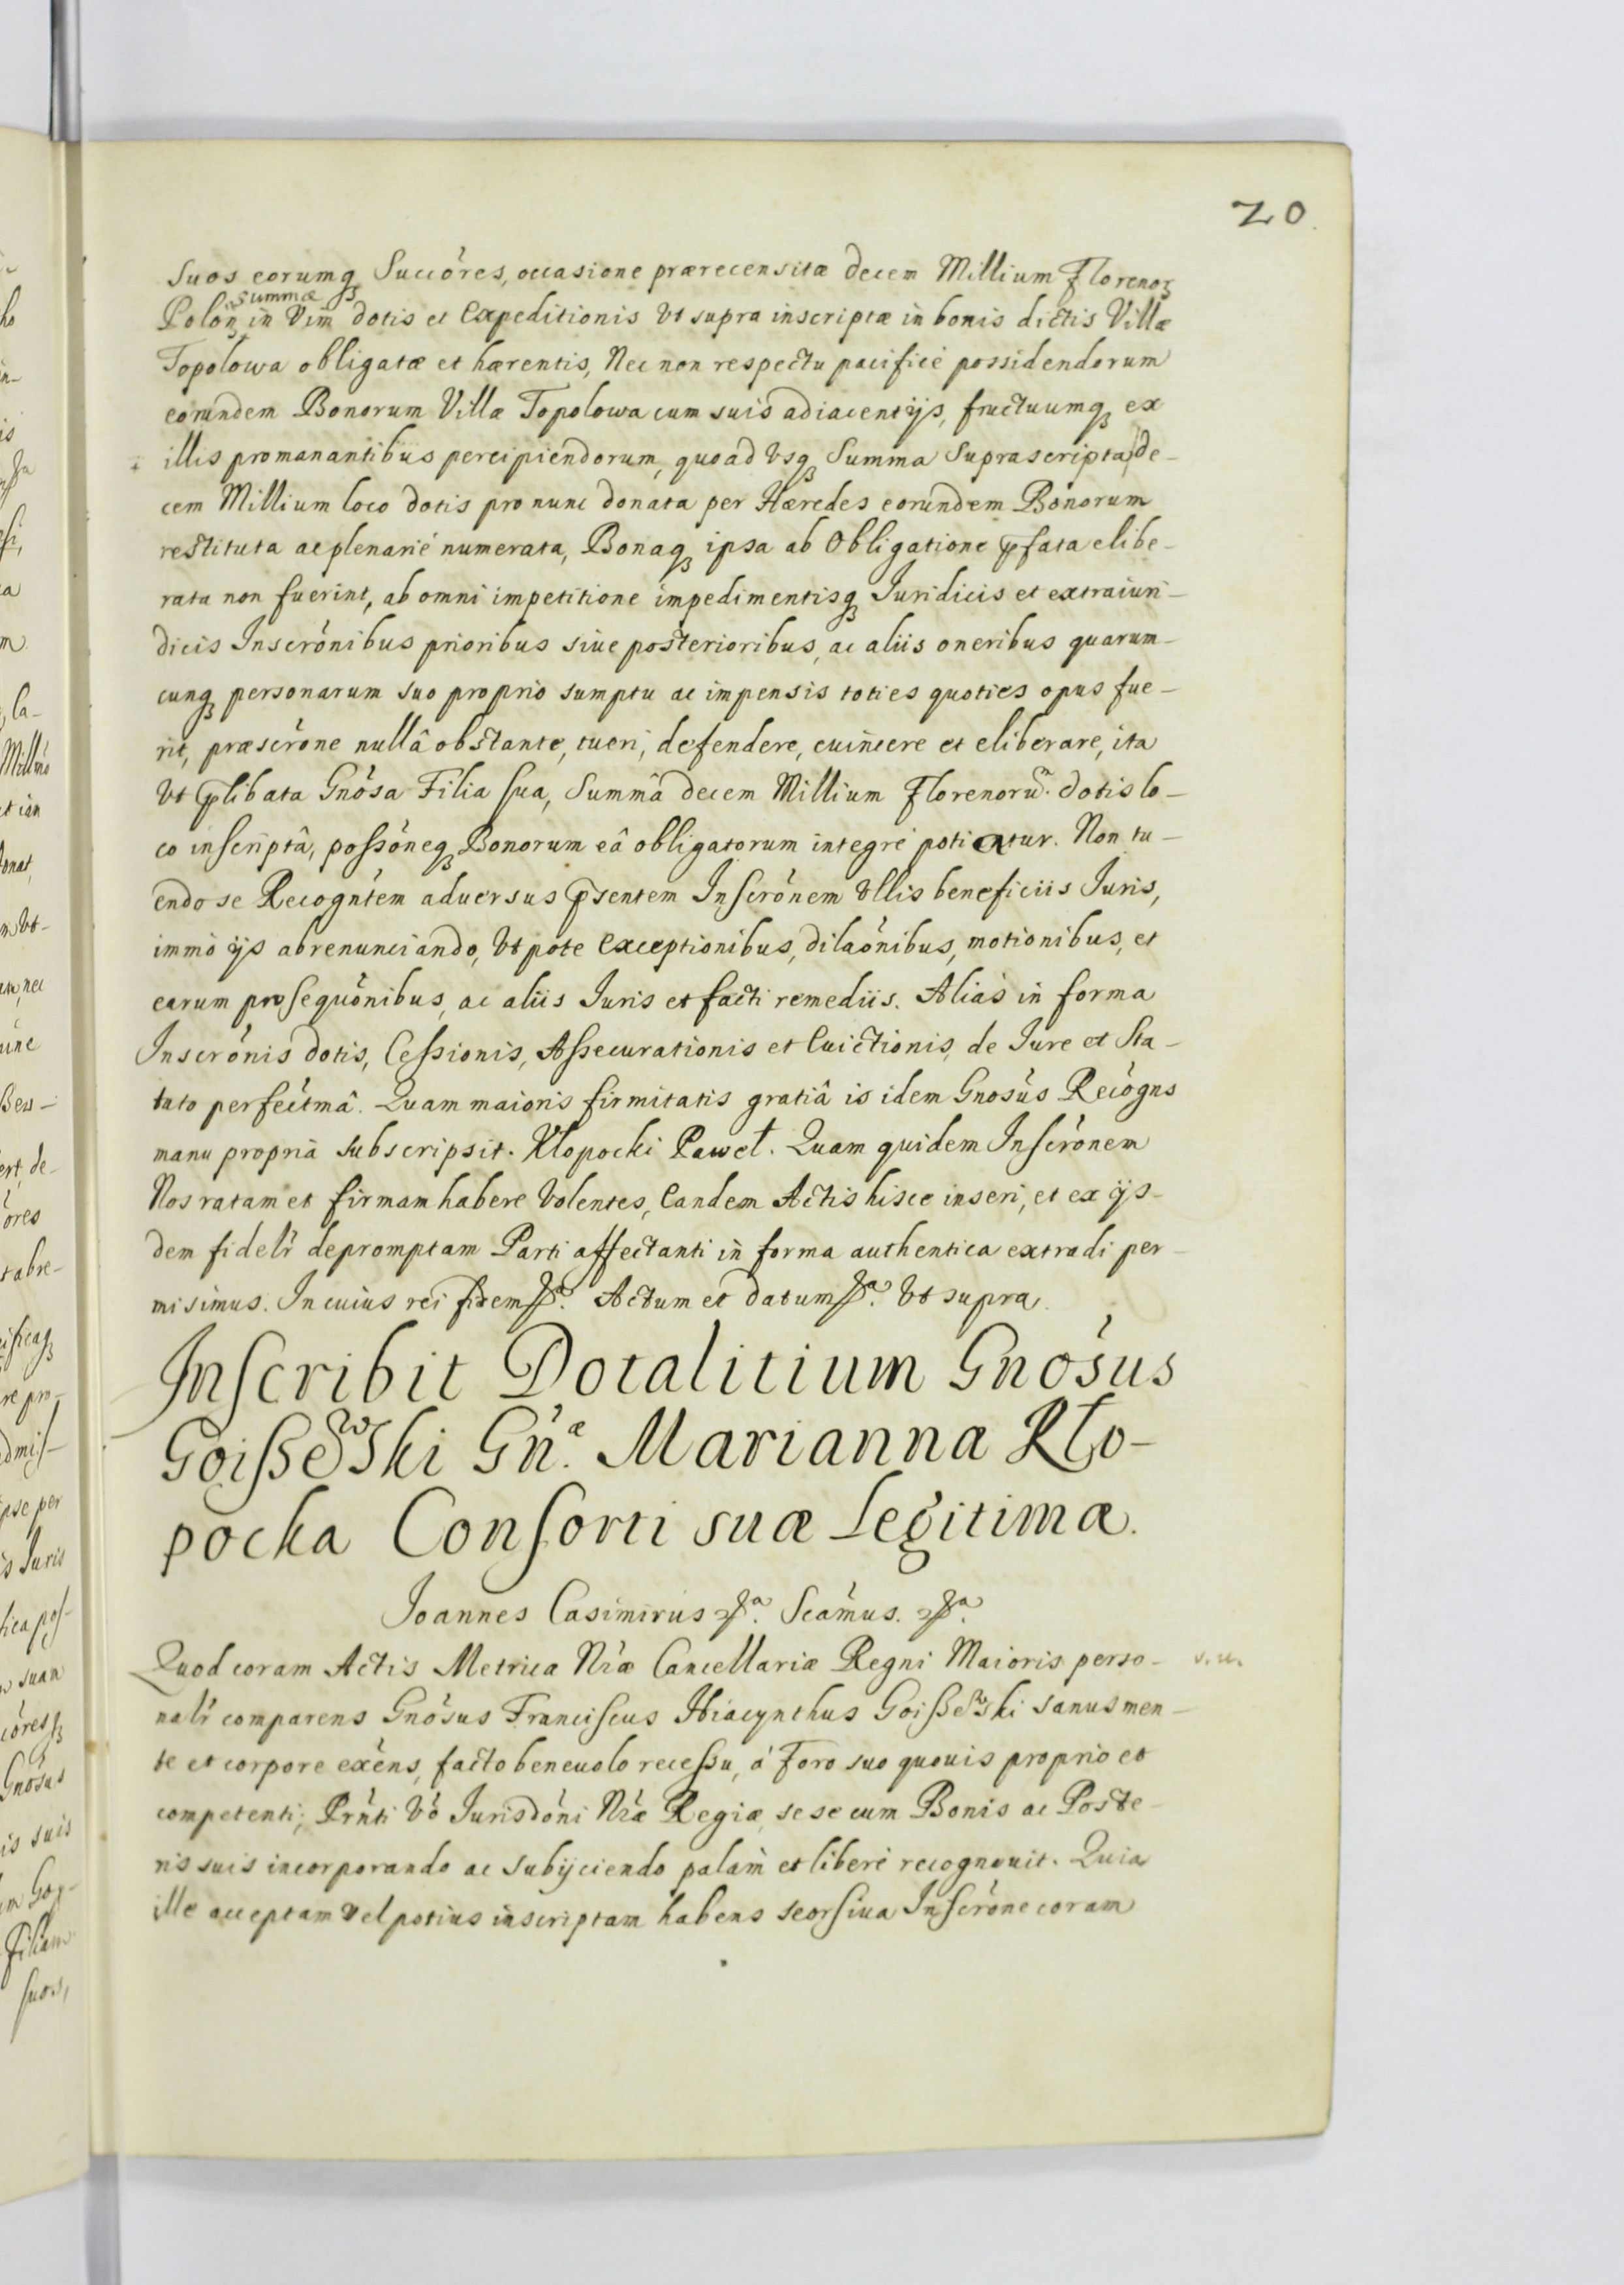 20
suos eorumq́ꝫ Succóres, occasione prærecensitæ decem Millium Florenoꝝ
summæ
Poloꝝ in Vim dotis et Expeditionis Vt supra inscriptæ in bonis dictis Villæ
Topolowa obligatæ et hærentis, Nec non respectu pacificè possidendorum
eorundem Bonorum Villæ Topolowa cum suis adiacentijs, fructuumqꝫ ex
illis promanantibus percipiendorum, quoad Vsqꝫ Summa Suprascripta de-
cem Millium loco dotis pro nunc donata per Hæredes eorundem Bonorum
restituta ac plenariè numerata, Bonaqꝫ ipsa ab Obligatione p̃fata elibe-
rata non fuerint, ab omni impetitione impedimentisqꝫ Iuridicis et extraiuri-
dicis Inscrónibus prioribus siue posterioribus, ac aliis oneribus quarum-
cunqꝫ personarum suo proprio sumptu ac impensis toties quoties opus fue-
rit, præscróne nullâ obstante, tueri, defendere, euincere et eliberare, ita
Vt p̃libata Gnósa Filia sua, Summâ decem Millium Florenorũ. dotis lo-
co inscriptâ, possóneqꝫ Bonorum eâ obligatorum integrè potiatur. Non tu-
endo se Recogntém aduersus p̃sentem Inscrónem Vllis beneficiis Iuris,
immò ijs abrenunciando, Vtpote Exceptionibus, dilaónibus, motionibus, et
earum prosequónibus, ac aliis Iuris et facti remediis. Aliàs in forma
Inscrónis dotis, Cessionis, Assecurationis et Euictionis, de Iure et Sta-
tuto perfectmâ. Quam maioris firmitatis gratiâ is idem Gnosús Recógns
manu propriâ subscripsit. Kłopocki Paweł. Quam quidem Inscrónem
Nos ratam et firmam habere Volentes, Eandem Actis hisce inseri, et ex ijs-
dem fidelr̃ depromptam Parti affectanti in forma authentica extradi per-
misimus. In cuius rei fidem ꝑᵃ. Actum et datum ꝑᵃ. Vt supra.
Inscribit Dotalitium Gnósus
Goissewski Gńᵃᵉ. Marianna Kło-
pocka Consorti suæ Legitimæ.
Ioannes Casimirus ꝑᵃ. Scámus. ꝑᵃ.
Quod coram Actis Metrica Nr̃æ Cancellariæ Regni Maioris perso-
nalr̃ comparens Gnósus Franciscus Hiacynthus Goissewski sanus men-
te et corpore exéns, facto beneuolo recessu, à Foro suo quouis proprio et
competenti, Prńti Vó Iurisdóni Nr̃æ Regiæ, sese cum Bonis ac Poste-
ris suis incorporando ac subijciendo palàm et liberè recognouit. Quia
ille acceptam Vel potius inscriptam habens seorsiua Inscróne coram